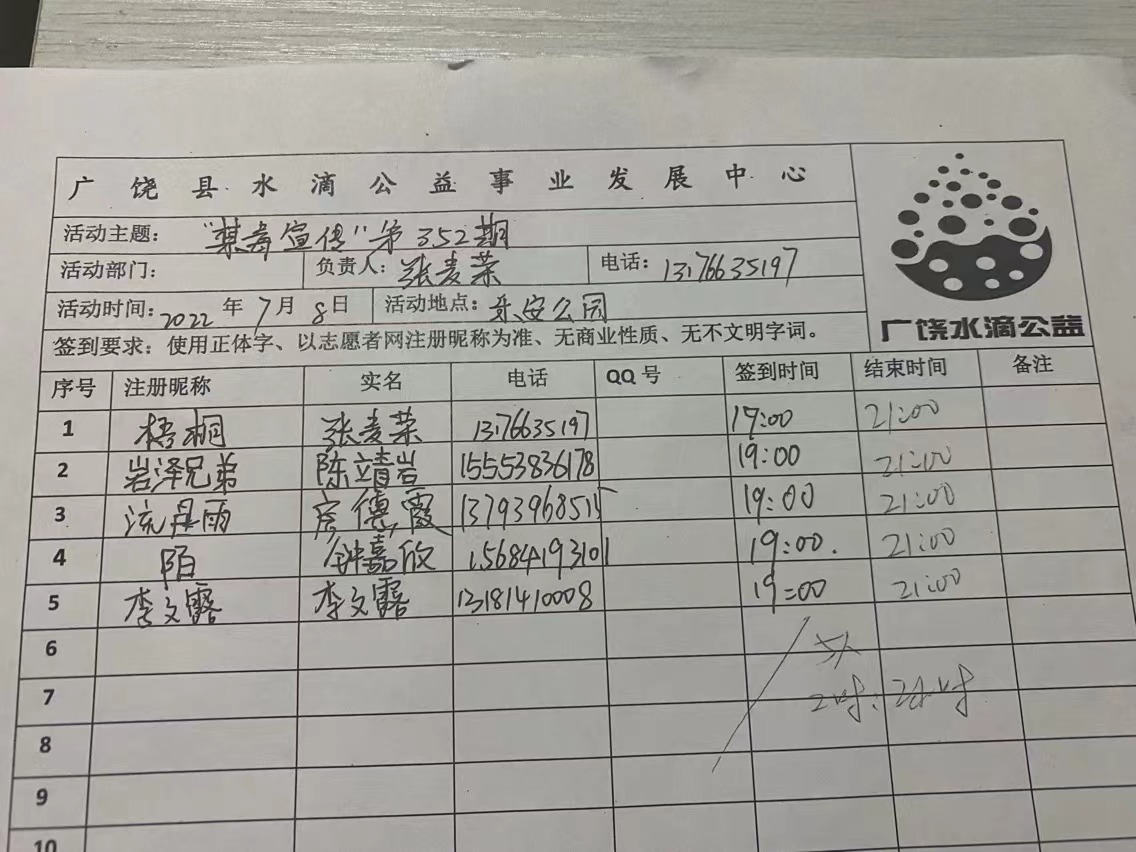 广饶县水滴公益事业发展中心
活动主题： "禁毒宣传"第352期
活动部门： 负责人：张麦荣 电话：13176635197
活动时间：2022年7月8日 活动地点：乐安公园
签到要求：使用正体字、以志愿者网注册昵称为准、无商业性质、无不文明字词。
广饶水滴公益
序号 注册昵称 实名 电话 QQ号 签到时间 结束时间 备注
1 梧桐 张麦荣 13176635197 19:00 21:00
2 岩泽兄弟 陈靖岩 15553836178 19:00 21:00
3 流星雨 房德霞 13793968515 19:00 21:00
4 陌 钟嘉欣 15684193101 19:00. 21:00
5 李文露 李文露 13181410008 19:00 21:00
6
7 2时：2小时
8
9
10